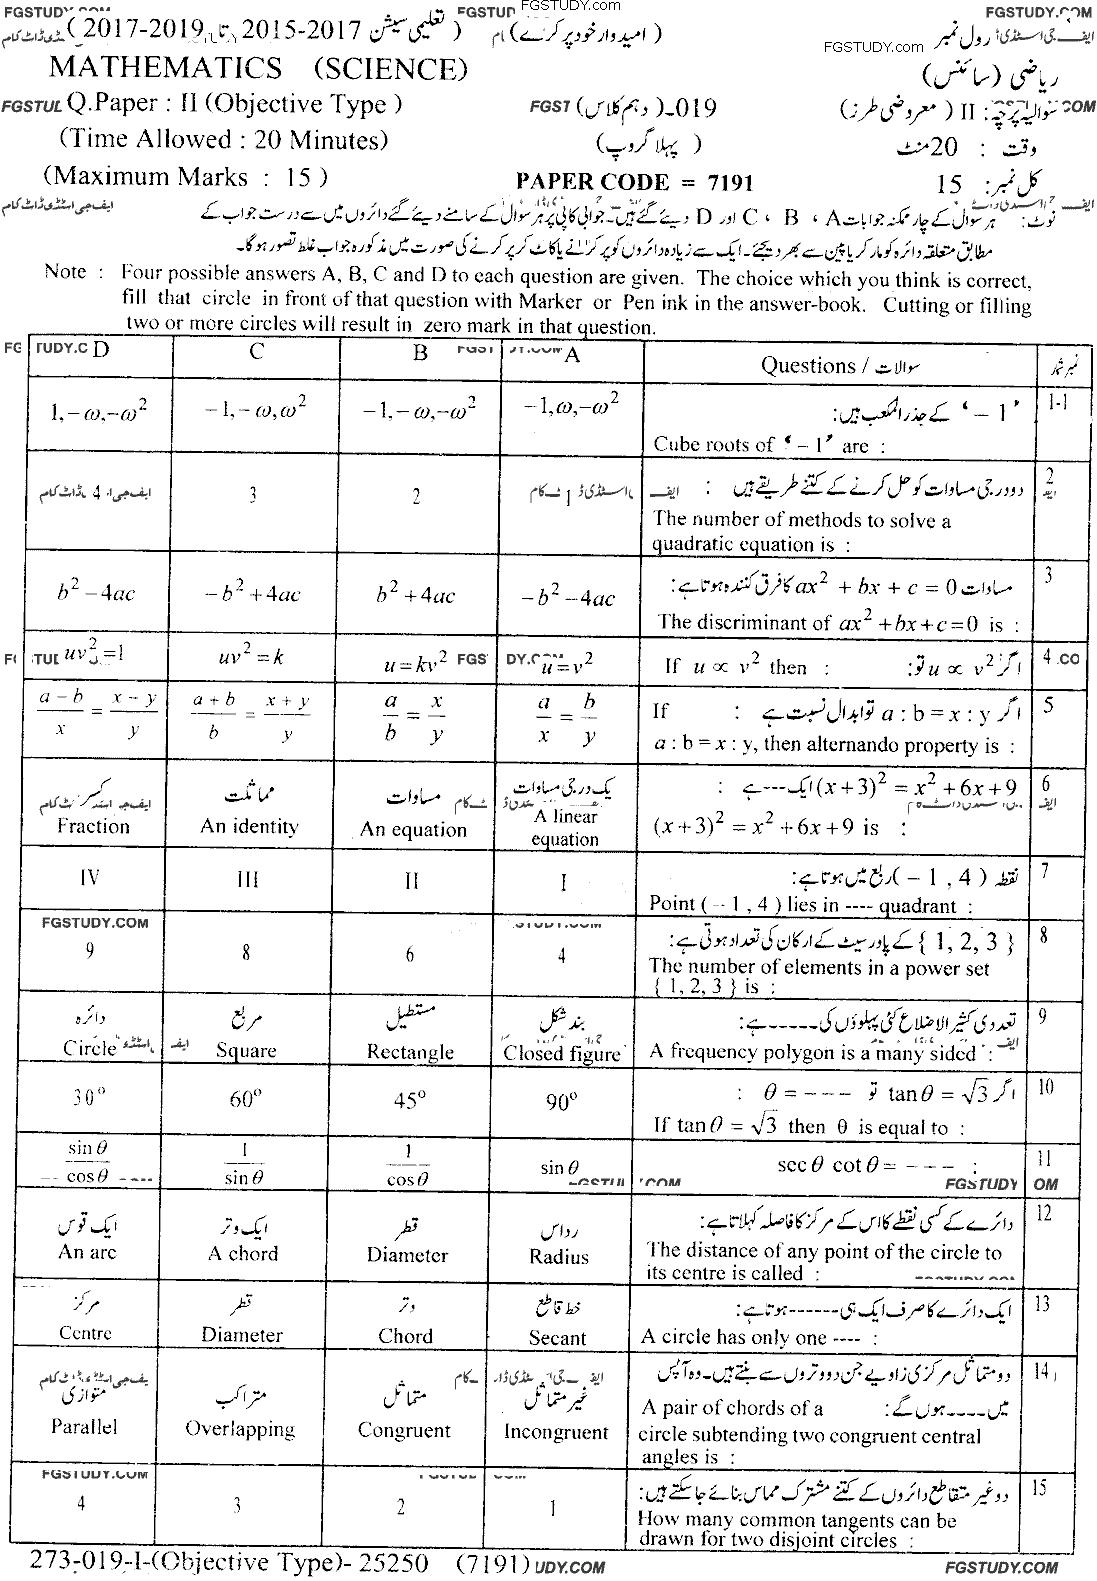 FGSTUDY.COM
( 2017-2019 تا 2015-2017 تعلیمی سیشن )
(امیدوار خود پر کرے)
رول نمبر
FGSTUDY.com
MATHEMATICS (SCIENCE)
ریاضی (سائنس)
Q.Paper : II (Objective Type )
019-(دہم کلاس)
سوالیہ پرچہ: II ( معروضی طرز)
(Time Allowed : 20 Minutes)
( پہلا گروپ)
وقت : 20 منٹ
(Maximum Marks : 15 )
PAPER CODE = 7191
کل نمبر: 15
نوٹ: ہر سوال کے چار ممکنہ جوابات A ، B ، C اور D دیئے گئے ہیں۔ جوابی کاپی پر ہر سوال کے سامنے دیئے گئے دائروں میں سے درست جواب کے
مطابق متعلقہ دائرہ کو مارکر یا پین سے بھر دیجئے۔ ایک سے زیادہ دائروں کو پر کرنے یا کاٹ کر پر کرنے کی صورت میں مذکورہ جواب غلط تصور ہوگا۔
Note : Four possible answers A, B, C and D to each question are given. The choice which you think is correct,
fill that circle in front of that question with Marker or Pen ink in the answer-book. Cutting or filling
two or more circles will result in zero mark in that question.
D C B A Questions / سوالات نمبر شمار
1,−ω,−ω² −1,−ω,ω² −1,−ω,−ω² −1,ω,−ω² ‘−1’ کے جذر المکعب ہیں: 1-1
Cube roots of ‘−1’ are :
4 3 2 1 دو درجی مساوات کو حل کرنے کے کتنے طریقے ہیں : 2
The number of methods to solve a
quadratic equation is :
b²−4ac −b²+4ac b²+4ac −b²−4ac مساوات ax² + bx + c = 0 کا فرق کنندہ ہوتا ہے: 3
The discriminant of ax²+bx+c=0 is :
uv²=1 uv²=k u=kv² u=v² If u ∝ v² then : اگر u ∝ v² تو: 4
(a−b)/x = (x−y)/y (a+b)/b = (x+y)/y a/b = x/y a/x = b/y If : اگر a : b = x : y تو ابدال نسبت ہے 5
a : b = x : y, then alternando property is :
کسر مماثلت مساوات یک درجی مساوات (x+3)² = x²+6x+9 ایک --- ہے : 6
Fraction An identity An equation A linear equation (x+3)² = x²+6x+9 is :
IV III II I نقطہ (−1, 4) ربع میں ہوتا ہے: 7
Point (−1, 4) lies in ---- quadrant :
9 8 6 4 { 1, 2, 3 } کے پاور سیٹ کے ارکان کی تعداد ہوتی ہے: 8
The number of elements in a power set
{ 1, 2, 3 } is :
دائرہ مربع مستطیل بند شکل تعددی کثیر الاضلاع کئی پہلوؤں کی -----ہے: 9
Circle Square Rectangle Closed figure A frequency polygon is a many sided :
30° 60° 45° 90° اگر tanθ = √3 تو θ = --- : 10
If tanθ = √3 then θ is equal to :
sinθ/cosθ 1/sinθ 1/cosθ sinθ secθ cotθ = --- : 11
ایک قوس ایک وتر قطر رداس دائرے کے کسی نقطے کا اس کے مرکز کا فاصلہ کہلاتا ہے: 12
An arc A chord Diameter Radius The distance of any point of the circle to
its centre is called :
مرکز قطر وتر خط قاطع ایک دائرے کا صرف ایک ہی ------ہوتا ہے: 13
Centre Diameter Chord Secant A circle has only one ---- :
متوازی متراکب متماثل غیر متماثل دو متماثل مرکزی زاویے جن دو وتروں سے بنتے ہیں۔ وہ آپس 14
Parallel Overlapping Congruent Incongruent میں ---- ہوں گے: A pair of chords of a
circle subtending two congruent central
angles is :
4 3 2 1 دو غیر متقاطع دائروں کے کتنے مشترک مماس بنائے جا سکتے ہیں: 15
How many common tangents can be
drawn for two disjoint circles :
273-019-I-(Objective Type)- 25250 (7191)
FGSTUDY.COM